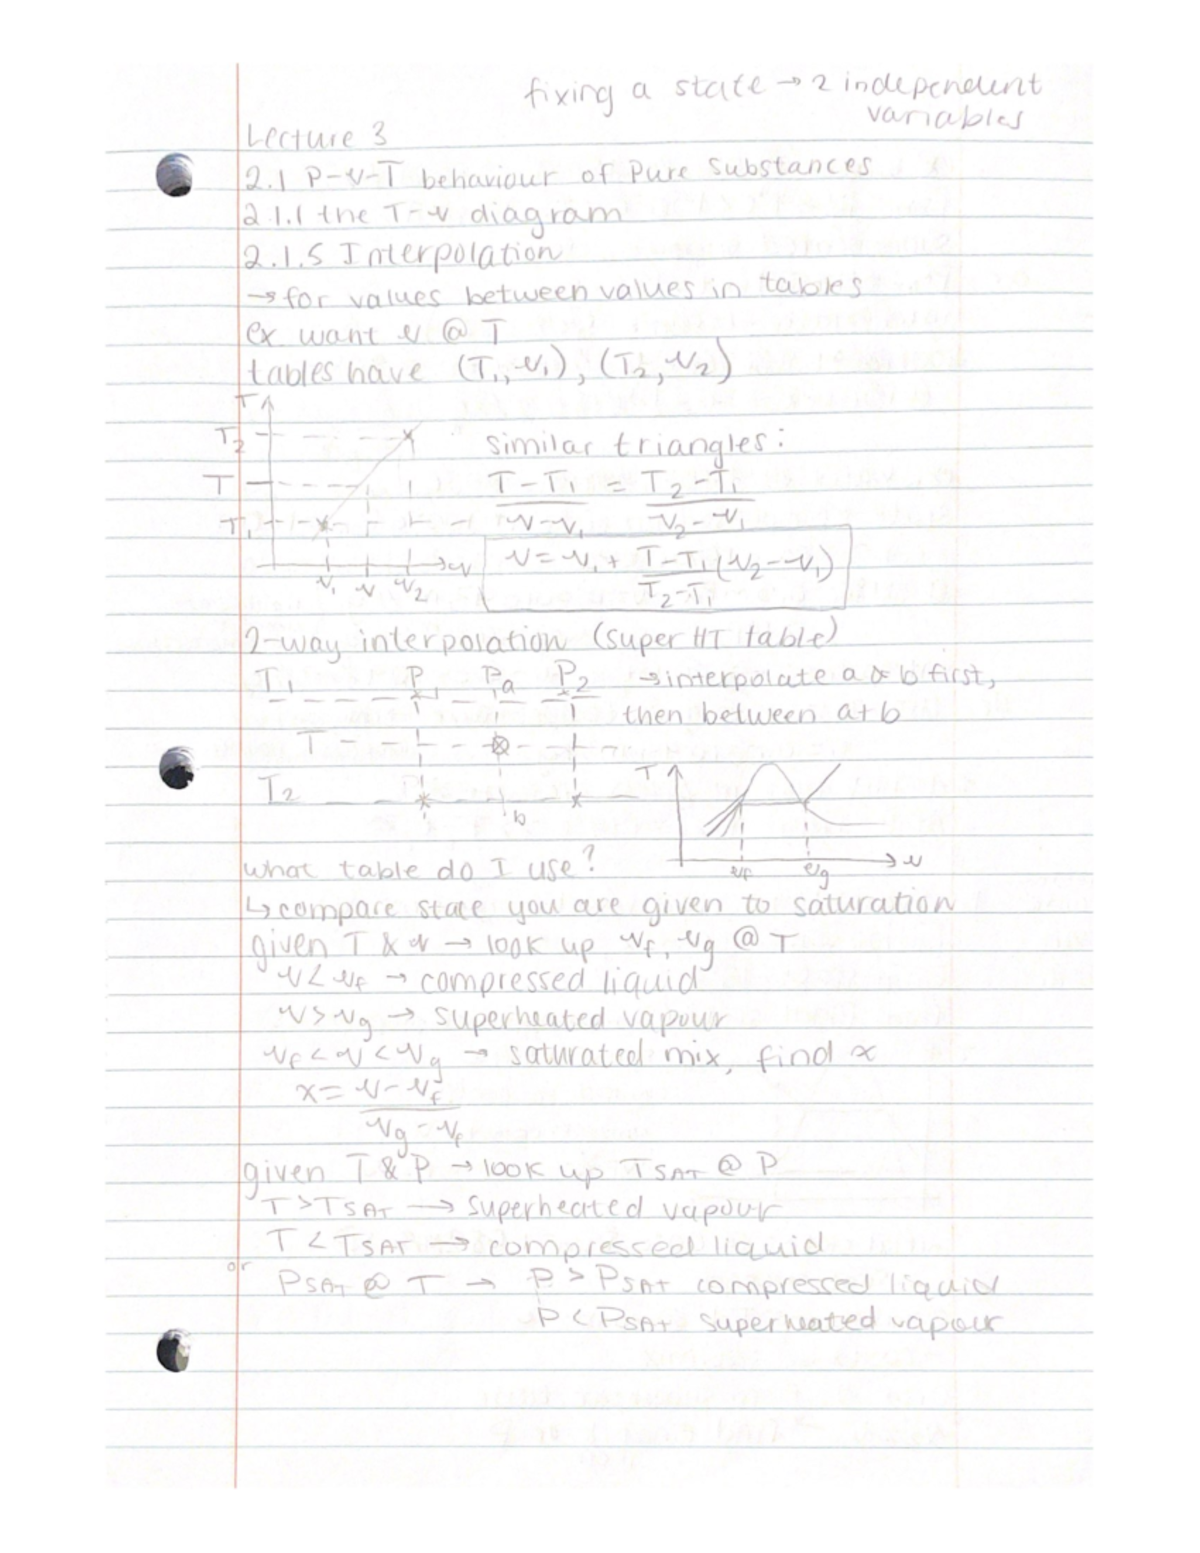 fixing a state → 2 independent
variables
Lecture 3
2.1 P-v-T behaviour of Pure Substances
2.1.1 the T-v diagram
2.1.5 Interpolation
→ for values between values in tables
ex want v @ T
tables have (T₁, v₁), (T₂, v₂)
T
T₂
T
T₁
v₁ v v₂ v
similar triangles:
T-T₁ / v-v₁ = T₂-T₁ / v₂-v₁
v = v₁ + T-T₁ / T₂-T₁ (v₂-v₁)
2-way interpolation (super HT table)
T₁ P₁ P a P₂ → interpolate a & b first,
then between a+b
T
T₂
b
T
vf vg v
what table do I use?
↳ compare state you are given to saturation
given T & v → look up vf, vg @ T
v < vf → compressed liquid
v > vg → superheated vapour
vf < v < vg → saturated mix, find x
x = v-vf / vg-vf
given T & P → look up TSAT @ P
T > TSAT → superheated vapour
T < TSAT → compressed liquid
or
PSAT @ T → P > PSAT compressed liquid
P < PSAT superheated vapour